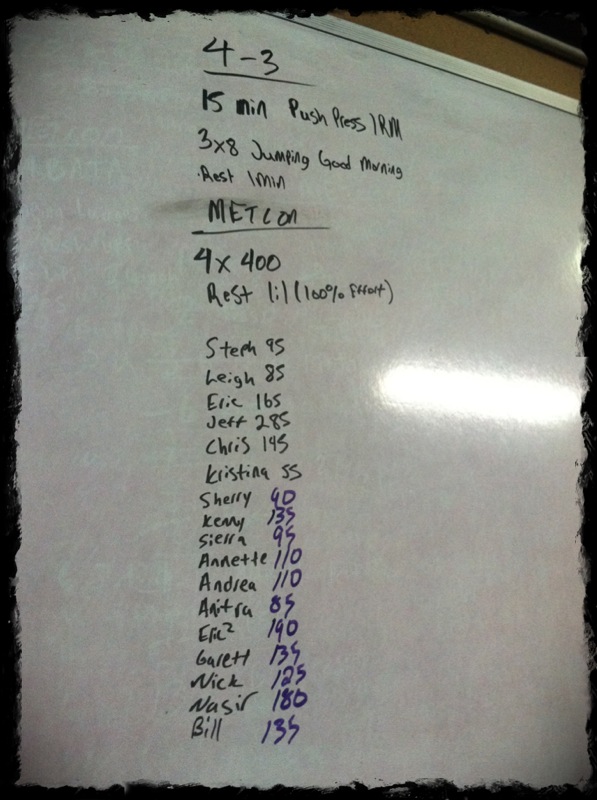 4-3
15 min Push Press 1RM
3x8 Jumping Good Morning
Rest 1min
METCON
4x 400
Rest 1:1 (100% Effort)
Steph 95
Leigh 85
Eric 165
Jeff 285
Chris 145
Kristina 55
Sherry 90
Kenny 135
Sierra 95
Annette 110
Andrea 110
Anitra 85
Eric² 190
Garett 135
Nick 125
Nasir 180
Bill 135